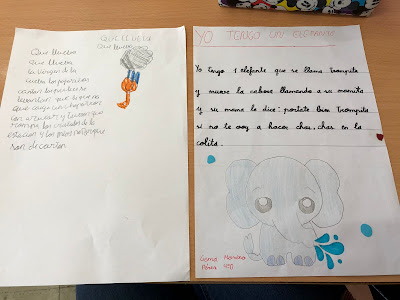 QUE LLUEVA
Que llueva
Que llueva
Que llueva
la Virgen de la
cueva los pajaritos
cantan las nubes se
levantan que si que no
que caiga un chaparrón
con
los cristales de la
estación y los míos no porque
son de cartón
YO TENGO UN ELEFANTE
Yo Tengo 1 elefante que se llama Trompita
y mueve la cabeza llamando a su mamita
y su mama le dice: portate bien Trompita
si no te voy a hacer chas, chas en la
colita.
Gema Moreno
Pérez 4ºD